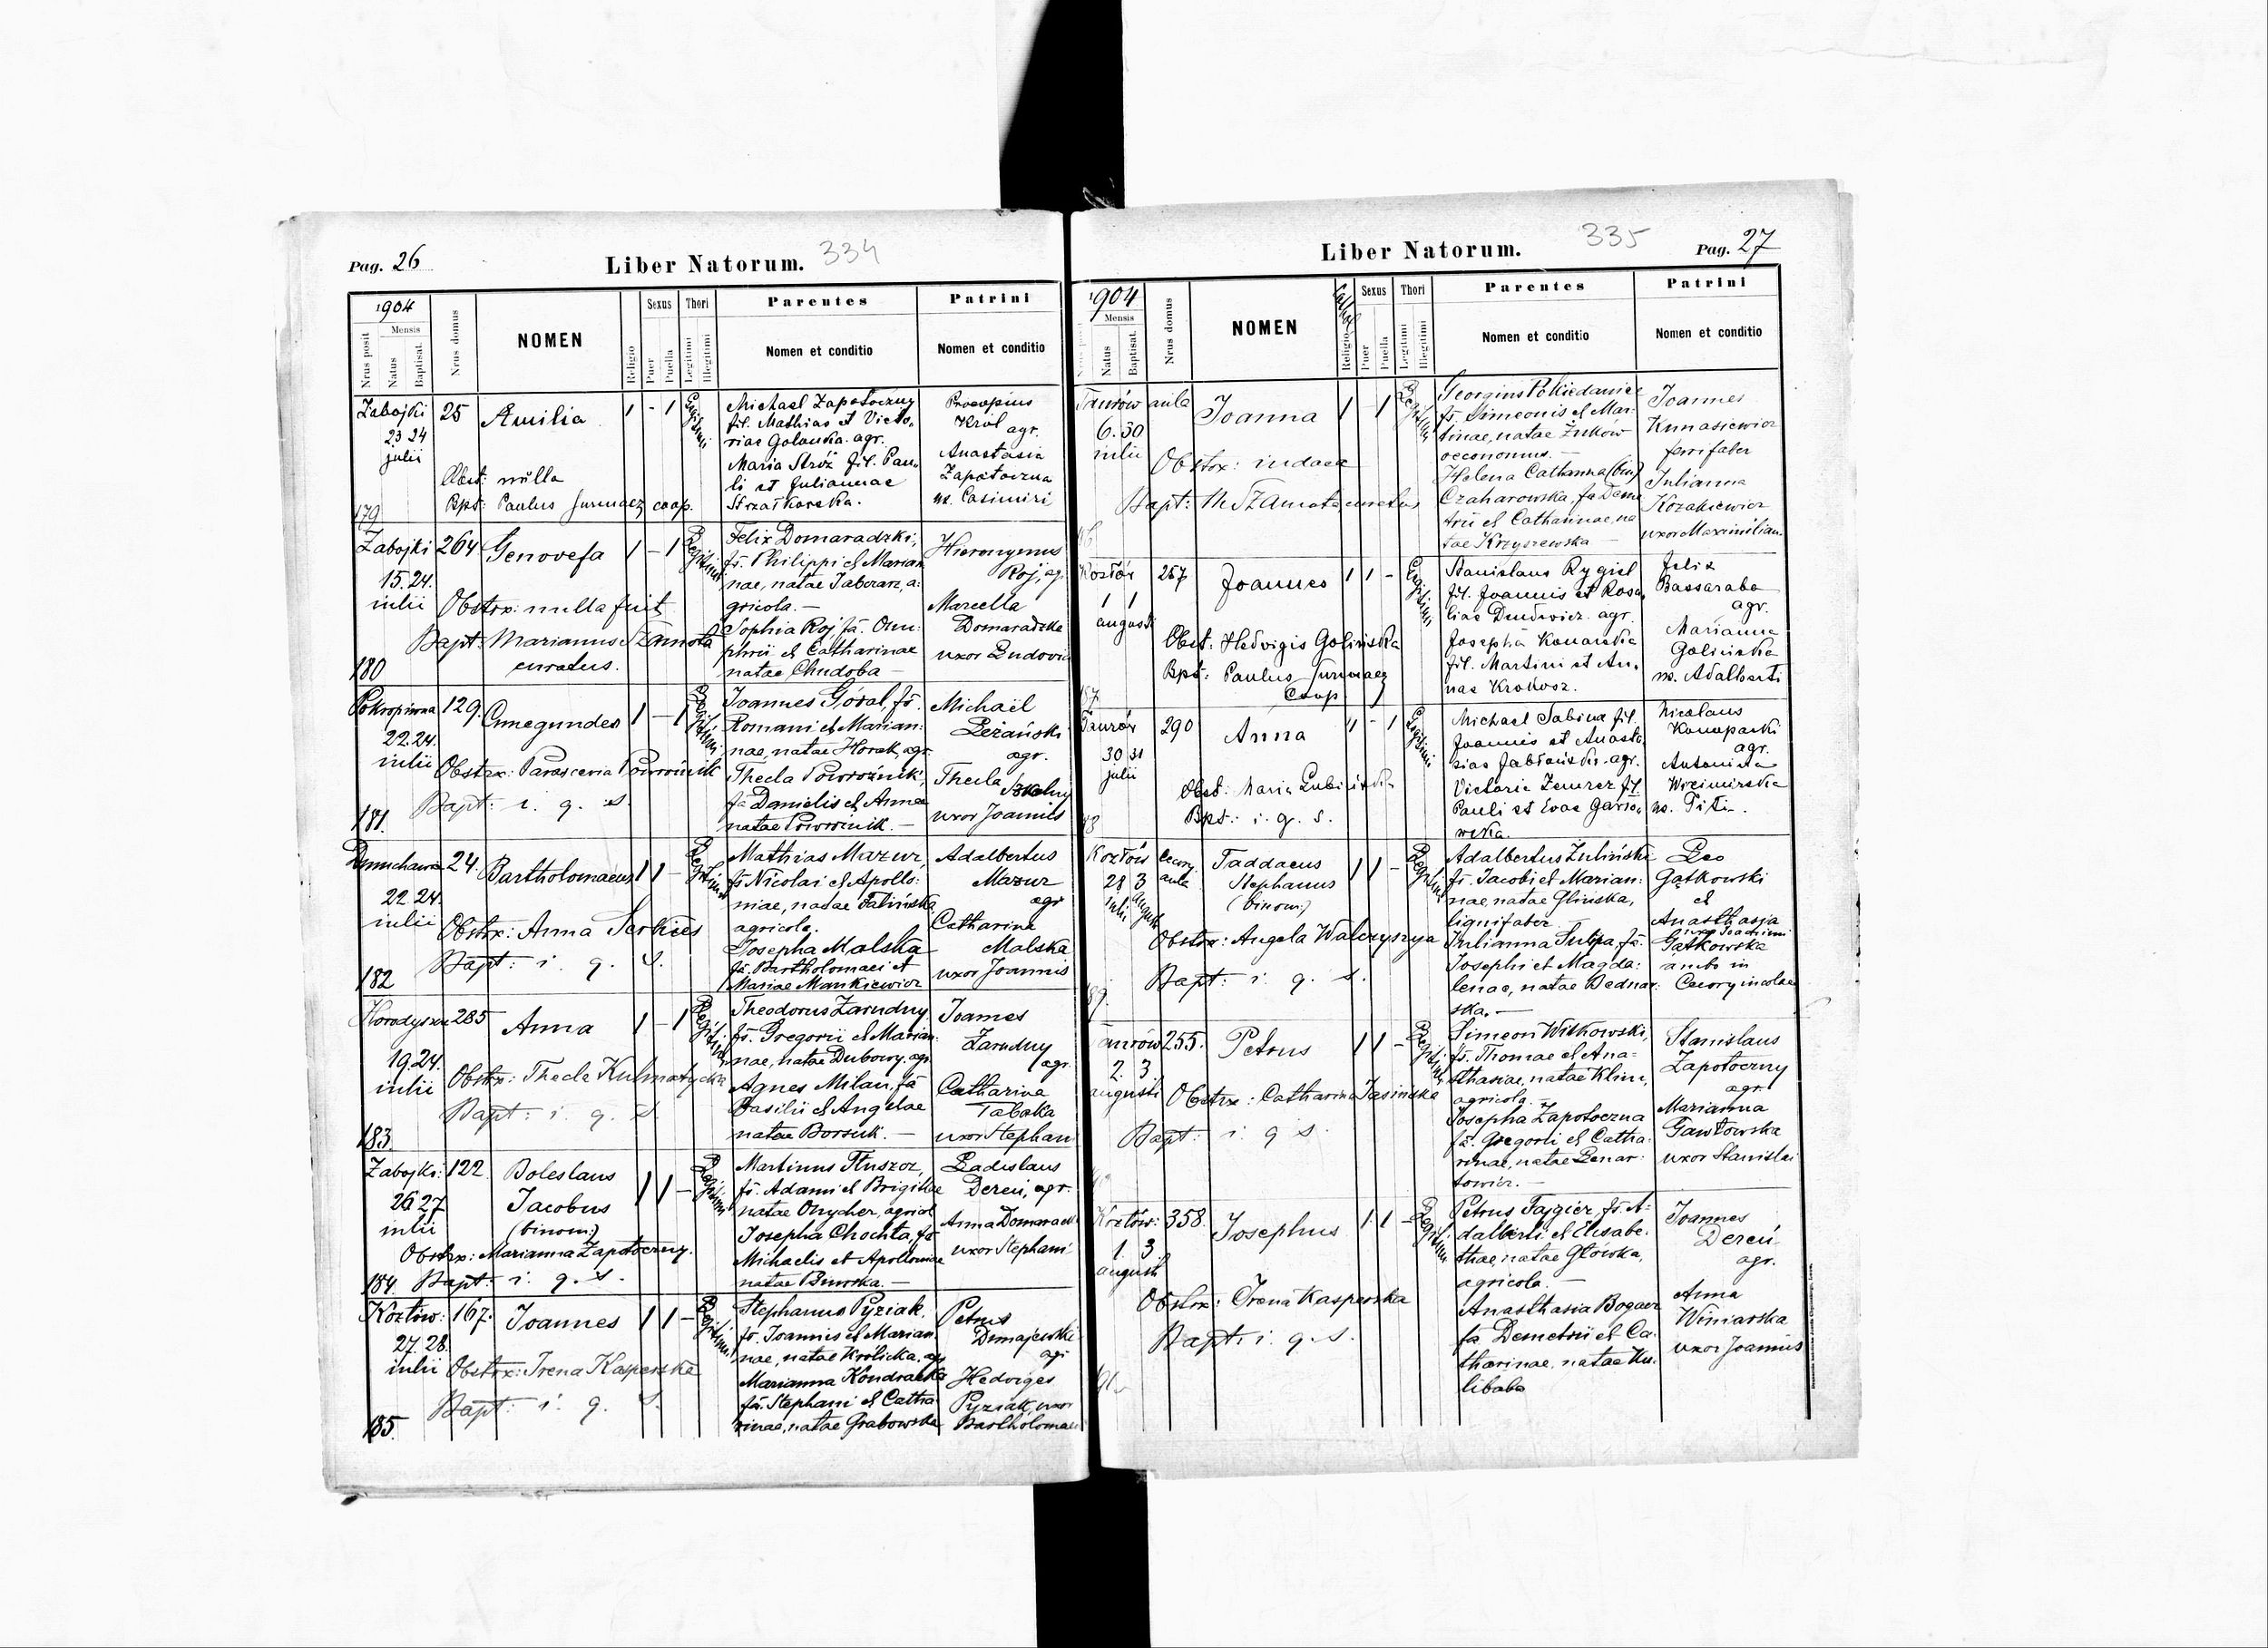 Pag. 26
Liber Natorum.
334
1904
Nrus posit
Mensis
Natus
Baptisat.
Nrus domus
NOMEN
Religio
Sexus
Puer
Puella
Thori
Legitimi
Illegitimi
Parentes
Nomen et conditio
Patrini
Nomen et conditio
Zabojki
23 24
julii
179
25
Amilia
1 - 1
Legitimi
Obst: nulla
Bpt: Paulus Jurmacz coop.
Michael Zapotoczny
fil. Mathias et Victo-
rias Golanka. agr.
Maria Stróż fil. Pau-
li et Juliannae
Strzałkowska.
Procopius
Król agr.
Anastasia
Zapotoczna
ux. Casimiri
Zabojki
15. 24.
iulii
180
264
Genovefa
1 - 1
Legitimi
Obstrx: nulla fuit
Bapt: Marianus Szamota
curatus.
Felix Domaradzki,
fs. Philippi et Marian
nae, natae Taborarz, a-
gricola. —
Sophia Roj, fa. Onu-
phrii et Catharinae
natae Chudoba —
Hieronymus
Roj, ag.
Marcella
Domaradzka
uxor Ludovici
Pokropiwna
22. 24.
iulii
181.
129.
Cunegundes
1 - 1
Legitimi
Obstrx: Parascevia Powroźnik
Bapt: i. q. s.
Joannes Góral, fs.
Romani et Marian-
nae, natae Horak, agr.
Thecla Powroźnik,
fa Danielis et Annae
natae Powroźnik. —
Michaël
Leżański
agr.
Thecla
Szkolny
uxor Joannis
22. 24.
iulii
182
24.
Bartholomaeus
1 1 -
Legitimi
Obstrx: Anna Serkies
Bapt: i. q. s.
Mathias Mazur,
fs Nicolai et Apollo-
niae, natae Falińska,
agricola.
Josepha Malska
fa. Bartholomaei et
Mariae Mankiewicz
Adalbertus
Mazur
agr
Catharina
Malska
uxor Joannis
Horodyszcze
19. 24.
iulii
183.
285
Anna
1 - 1
Legitimi
Obstrx: Thecla Kulmatycka
Bapt: i. q. s
Theodorus Zarudny,
fs. Gregorii et Marian-
nae, natae Dubowy. agr.
Agnes Milan, fa
Basilii et Angelae
natae Borsuk. —
Joannes
Zarudny
agr.
Catharina
Tabaka
uxor Stephan
Zabojki:
26 27
iulii
184.
122.
Boleslaus
Jacobus
(binom:)
1 1 -
Legitimi
Obstrx: Marianna Zapotoczny.
Bapt: i. q. s.
Martinus Tłuszcz,
fs. Adami et Brigittae
natae Onycher, agricol
Josepha Chochla, fa
Michaelis et Apolloniae
natae Burska. —
Ladislaus
Dereń, agr.
Anna Domaradz
uxor Stephani
Kozłów:
27. 28.
iulii
185.
167.
Joannes
1 1 -
Legitimi
Obstrx: Irena Kasperska
Bapt: i. q. s.
Stephanus Pyziak,
fs. Joannis et Marian-
nae, natae Królicka, agr
Marianna Kondracka
fa. Stephani et Catha-
rinae, natae Grabowska
Petrus
Dmajewski
agr
Hedviges
Pyziak, uxor
Bartholomaei
Liber Natorum.
335
Pag. 27
1904
Mensis
Natus
Baptisat.
Nrus domus
NOMEN
Religio
Sexus
Puer
Puella
Thori
Legitimi
Illegitimi
Parentes
Nomen et conditio
Patrini
Nomen et conditio
Taurów
6. 30
iulii
aula
Joanna
1 - 1
Legitimi
Obstrx: iudaea
Bapt: M Szamota, curatus
Georgius Pokiedaniec
fs. Simeonis et Mar-
tinae, natae Żuków
oeconomus. —
Helena Catharina (bin)
Czaharowska, fa Deme
trii et Catharinae, na
tae Krzyszewska —
Joannes
Kunasiewicz
ferrifaber
Julianna
Kozakiewicz
uxor Maximilian
Kozłów
1 1
augusti
187
267
Joannes
1 1 -
Legitimi
Obst: Hedvigis Golińska
Bpt: Paulus Jurmacz
Coop
Stanislaus Rygiel
fil. Joannis et Rosa-
lias Dendewicz agr.
Josepha Konarska
fil. Martini et An-
nae Krokosz.
Felix
Bassaraba
agr.
Marianna
Golińska
ux. Adalberti
Taurów
30 31
julii
290
Anna
1 - 1
Legitimi
Obst: Maria Lubińska
Bpt: i. q. s.
Michael Sabina fil.
Joannis et Anasta-
sias Jabłońska. agr.
Victoria Zemrez fil.
Pauli et Evae Garso-
wska.
Nicolaus
Konoparski
agr.
Antonina
Wizimirska
ux. Titi.
Kozłów
28 3
iulii augusti
Cecory
aula
Taddaeus
Stephanus
(binom:)
1 1 -
Legitimi
Obstrx: Angela Walczyszyn
Bapt: i. q. s.
Adalbertus Żuliński
fs. Jacobi et Marian-
nae, natae Glińska,
lignifaber —
Julianna Tulipa, fa.
Josephi et Magda-
lenae, natae Bednar-
ska. —
Leo
Gątkowski
et
Anasthasia
Gątkowska
ambo in
Cecory incolae
Taurów
2. 3.
augusti
255.
Petrus
1 1 -
Legitimi
Obstrx: Catharina Jasińska
Bapt: i. q s.
Simeon Witkowski,
fs. Thomae et Ana-
sthasiae, natae Klim,
agricola. —
Josepha Zapotoczna
fa. Gregorii et Catha-
rinae, natae Lenar-
towicz. —
Stanislaus
Zapotoczny
agr.
Marianna
Gawłowska
uxor Stanislai
Kozłów:
1. 3.
augusti
358.
Josephus
1 1 -
Legitimi
Obstrx: Irena Kasperska
Bapt: i. q. s.
Petrus Fajgier, fs. A-
dalberti et Elisabe-
thae, natae Główka,
agricola. —
Anasthasia Bogacz
fa Demetrii et Ca-
tharinae, natae Ku-
libaba
Joannes
Dereń
agr.
Anna
Winiarska
uxor Joannis